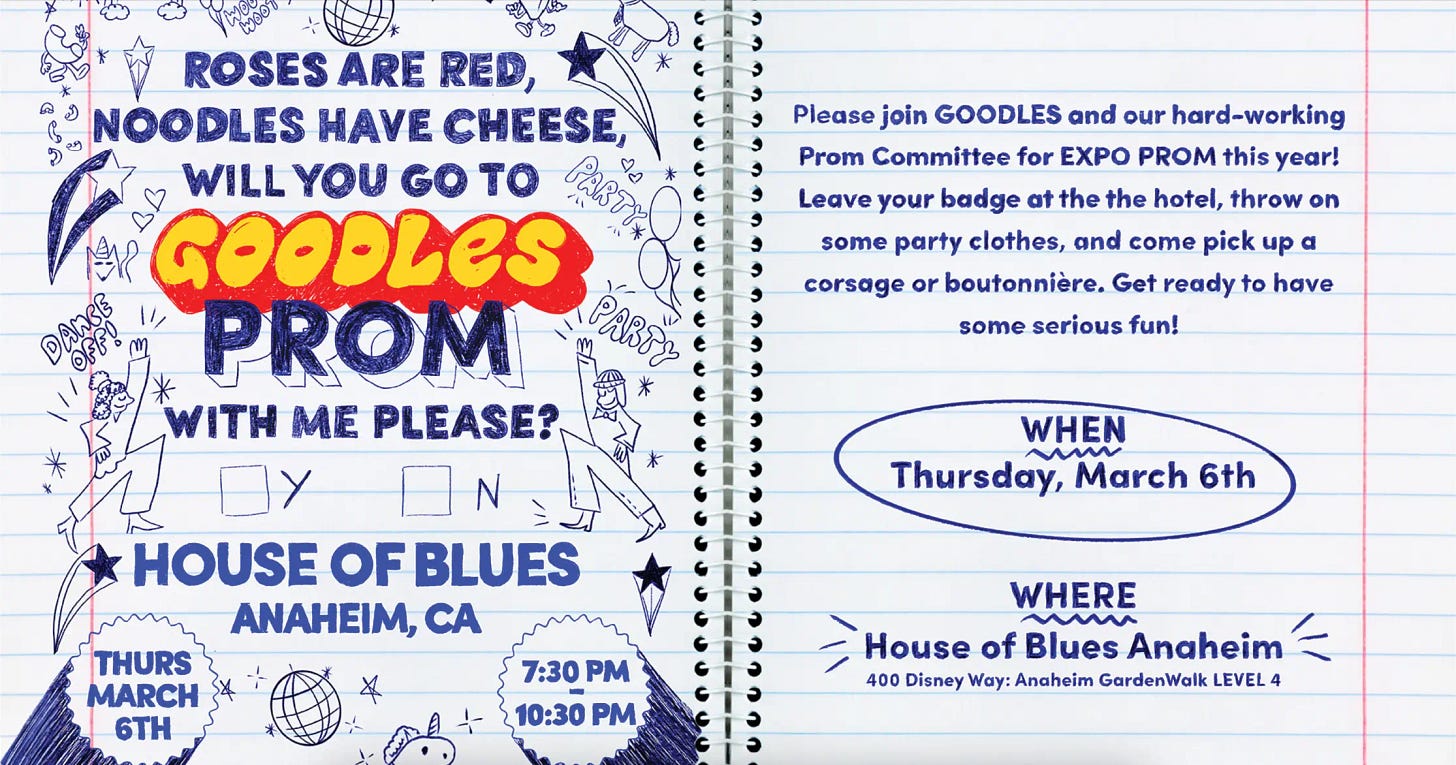 WOOT WOOT
ROSES ARE RED,
NOODLES HAVE CHEESE,
WILL YOU GO TO
PARTY
GOODLES
PROM
DANCE OFF!
PARTY
WITH ME PLEASE?
Y N
HOUSE OF BLUES
ANAHEIM, CA
THURS
MARCH
6TH
7:30 PM
–
10:30 PM
Please join GOODLES and our hard-working
Prom Committee for EXPO PROM this year!
Leave your badge at the the hotel, throw on
some party clothes, and come pick up a
corsage or boutonnière. Get ready to have
some serious fun!
WHEN
Thursday, March 6th
WHERE
House of Blues Anaheim
400 Disney Way: Anaheim GardenWalk LEVEL 4